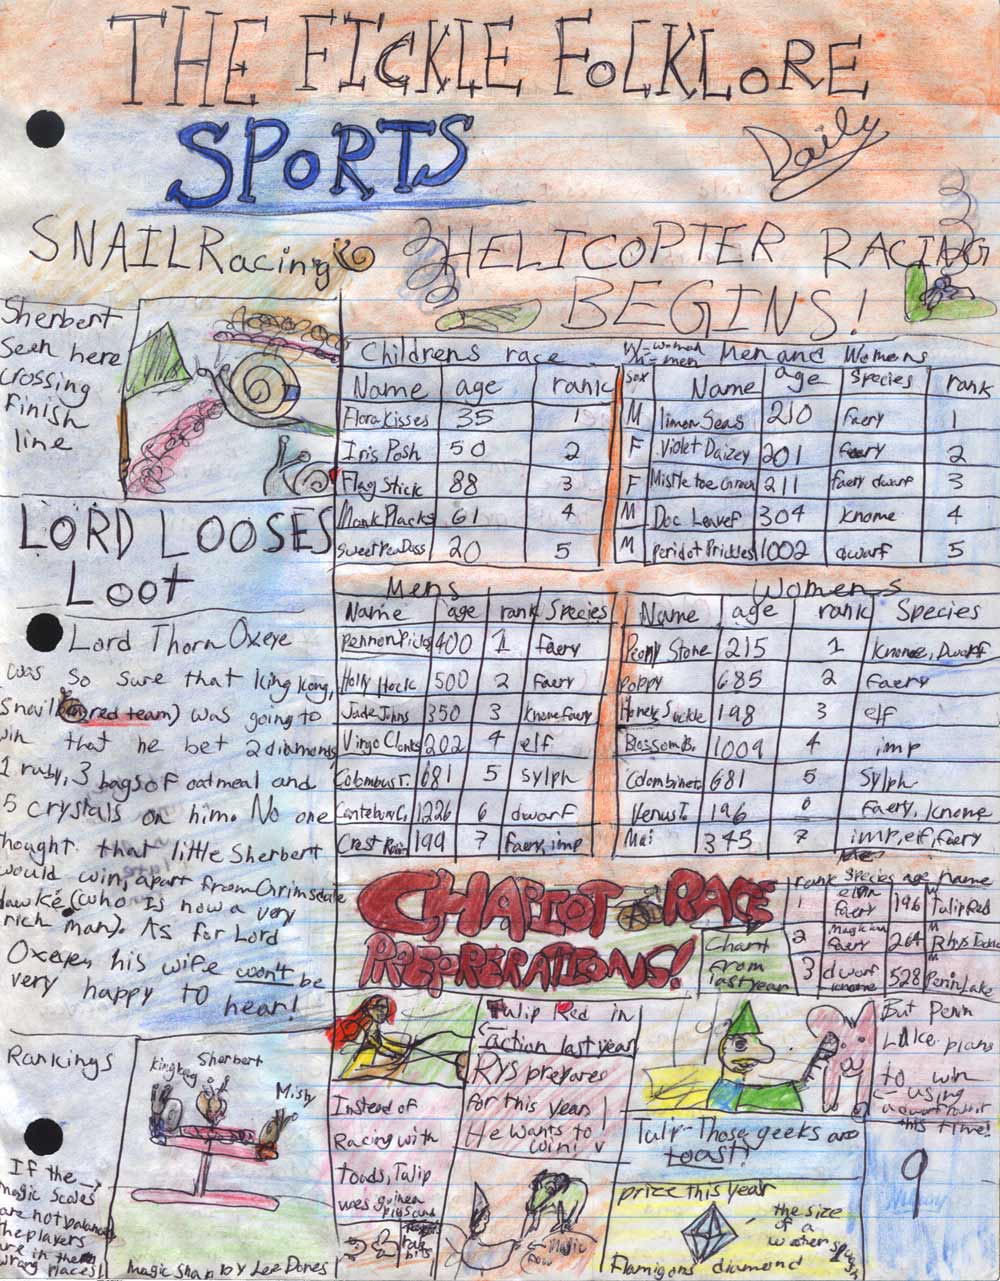 THE FICKLE FOLKLORE
SPORTS
Daily
SNAIL Racing
HELICOPTER RACING
BEGINS!
Sherbert
Seen here
crossing
Finish
line
Childrens race
Name age rank
Flora Kisses 35 1
Iris Posh 50 2
Flag Stick 88 3
Monk Placks 61 4
20 5
W-woman
M-men
Men and Womens
Sex Name age Species rank
M limon Seas 210 faery 1
F Violet Daizey 201 faery 2
F Mistletoe Green 211 faery dwarf 3
M Doc Leaver 304 Knome 4
M Peridot Prickles 1002 dwarf 5
LORD LOOSES
Loot
Lord Thorn Oxeye
was so sure that King Kong,
Snail (red team) was going to
win that he bet 2 diamonds
1 ruby, 3 bags of oatmeal and
5 crystals on him. No one
thought that little Sherbert
would win, apart from Grimsdale
dawke (who is now a very
rich man). As for Lord
Oxeye, his wife won't be
very happy to hear!
Mens
Name age rank Species
400 1 Faery
Holly Hock 500 2 Faery
Jade Johns 350 3 Knome Faery
Virgo Clonts 202 4 elf
Colombus T. 681 5 sylph
1226 6 dwarf
Crest 199 7 faery, imp
Womens
Name age rank Species
Peony Stone 215 1 Knome, Dwarf
Poppy 685 2 faery
Honey Suckle 198 3 elf
Blossom B. 1009 4 imp
Colombine T. 681 5 Sylph
Venus T. 196 6 Faery, Knome
Mai 345 7 imp, elf, faery
CHARIOT RACE
PREPERATIONS!
Chart
from
last year
rank Species age name
1 Faery 196 Tulip Red
2 magician Faery 264 M Rhys
3 dwarf Knome 528 M Penn Lake
Tulip Red in
action last year
Rys prepares
for this year!
He wants to
win!
Instead of
Racing with
toads, Tulip
uses guinea
pigs and
But Penn
Lake plans
to win
using
a
this time!
Tulip- Those geeks are
toast!
prize this year
the size
of a
water
Flamigons diamond
Magic
Rankings
King Kong Sherbert
Misty
If the
magic scales
are not balanced
the players
are in the
wrong places!
Magic Snap by Lee Dores
9